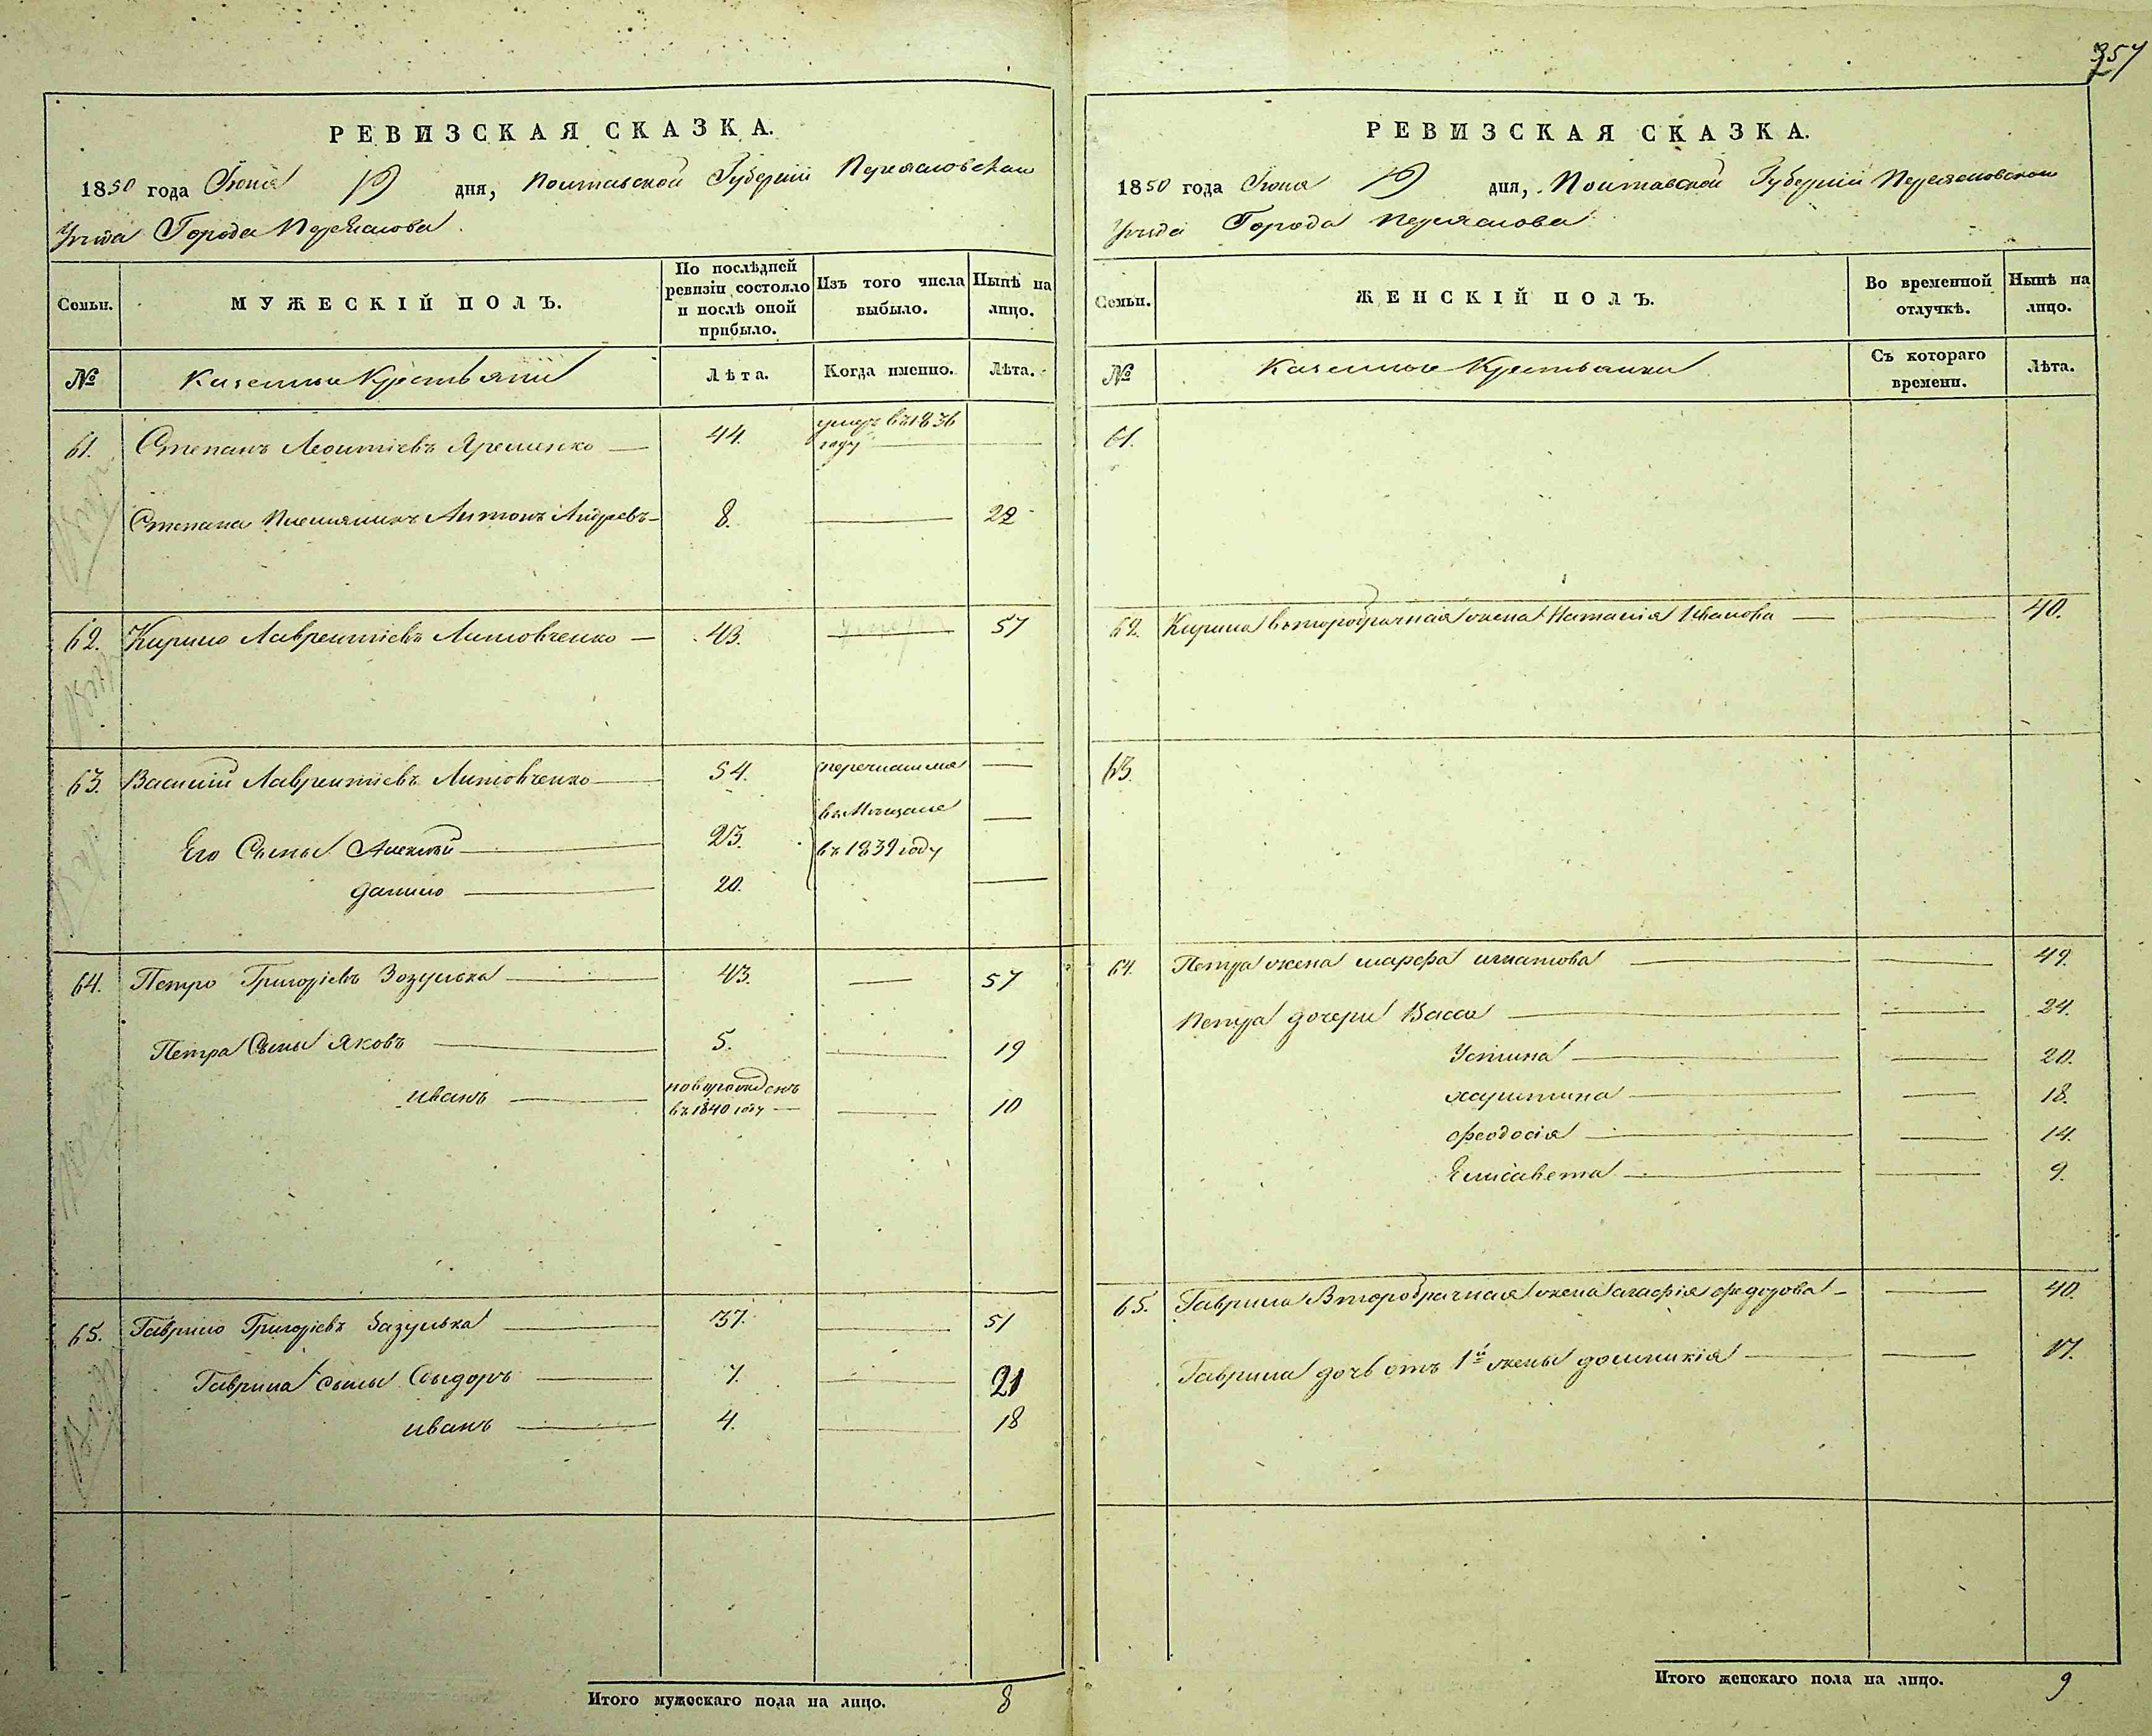 357
РЕВИЗСКАЯ СКАЗКА.
1850 года Іюня 19 дня, Полтавской Губерніи Переясловскаго
Уѣзда Города Переяслова
Семьи. МУЖЕСКІЙ ПОЛЪ. По послѣдней ревизіи состояло и послѣ оной прибыло. Изъ того числа выбыло. Нынѣ на лицо.
№ Казенные Крестьяне Лѣта. Когда именно. Лѣта.
61. Степанъ Леонтіевъ Яременко 44. умеръ въ 1836 году
Степана племяникъ Антонъ Андреевъ 8. 22
62. Кирило Лаврентіевъ Литовченко 43. 57
63. Василий Лаврентіевъ Литовченко 54. перечислился
въ Мѣщане
Его Сыны Алексѣй 23. въ 1839 году
Данило 20.
64. Петро Григоріевъ Зозулька 43. 57
Петра Сыны Яковъ 5. 19
иванъ новорожденъ въ 1840 году 10
65. Гаврило Григоріевъ Зазулька 37. 51
Гаврила сыны Сыдоръ 7. 21
иванъ 4. 18
Итого мужескаго пола на лицо. 8
РЕВИЗСКАЯ СКАЗКА.
1850 года Іюня 19 дня, Полтавской Губерніи Переясловскаго
Уѣзда Города Переяслова
Семьи. ЖЕНСКІЙ ПОЛЪ. Во временной отлучкѣ. Нынѣ на лицо.
№ Казенные Крестьянки Съ котораго времени. Лѣта.
61.
62. Кирила второбрачная жена Наталія Иванова 40.
63.
64. Петра жена марфа игнатова 49.
Петра дочери Васса 24.
Устина 20.
харитина 18.
феодосія 14.
Елисавета 9.
65. Гаврила Второбрачная жена агафія федорова 40.
Гаврила дочь отъ 1й жены домникія 17.
Итого женскаго пола на лицо. 9